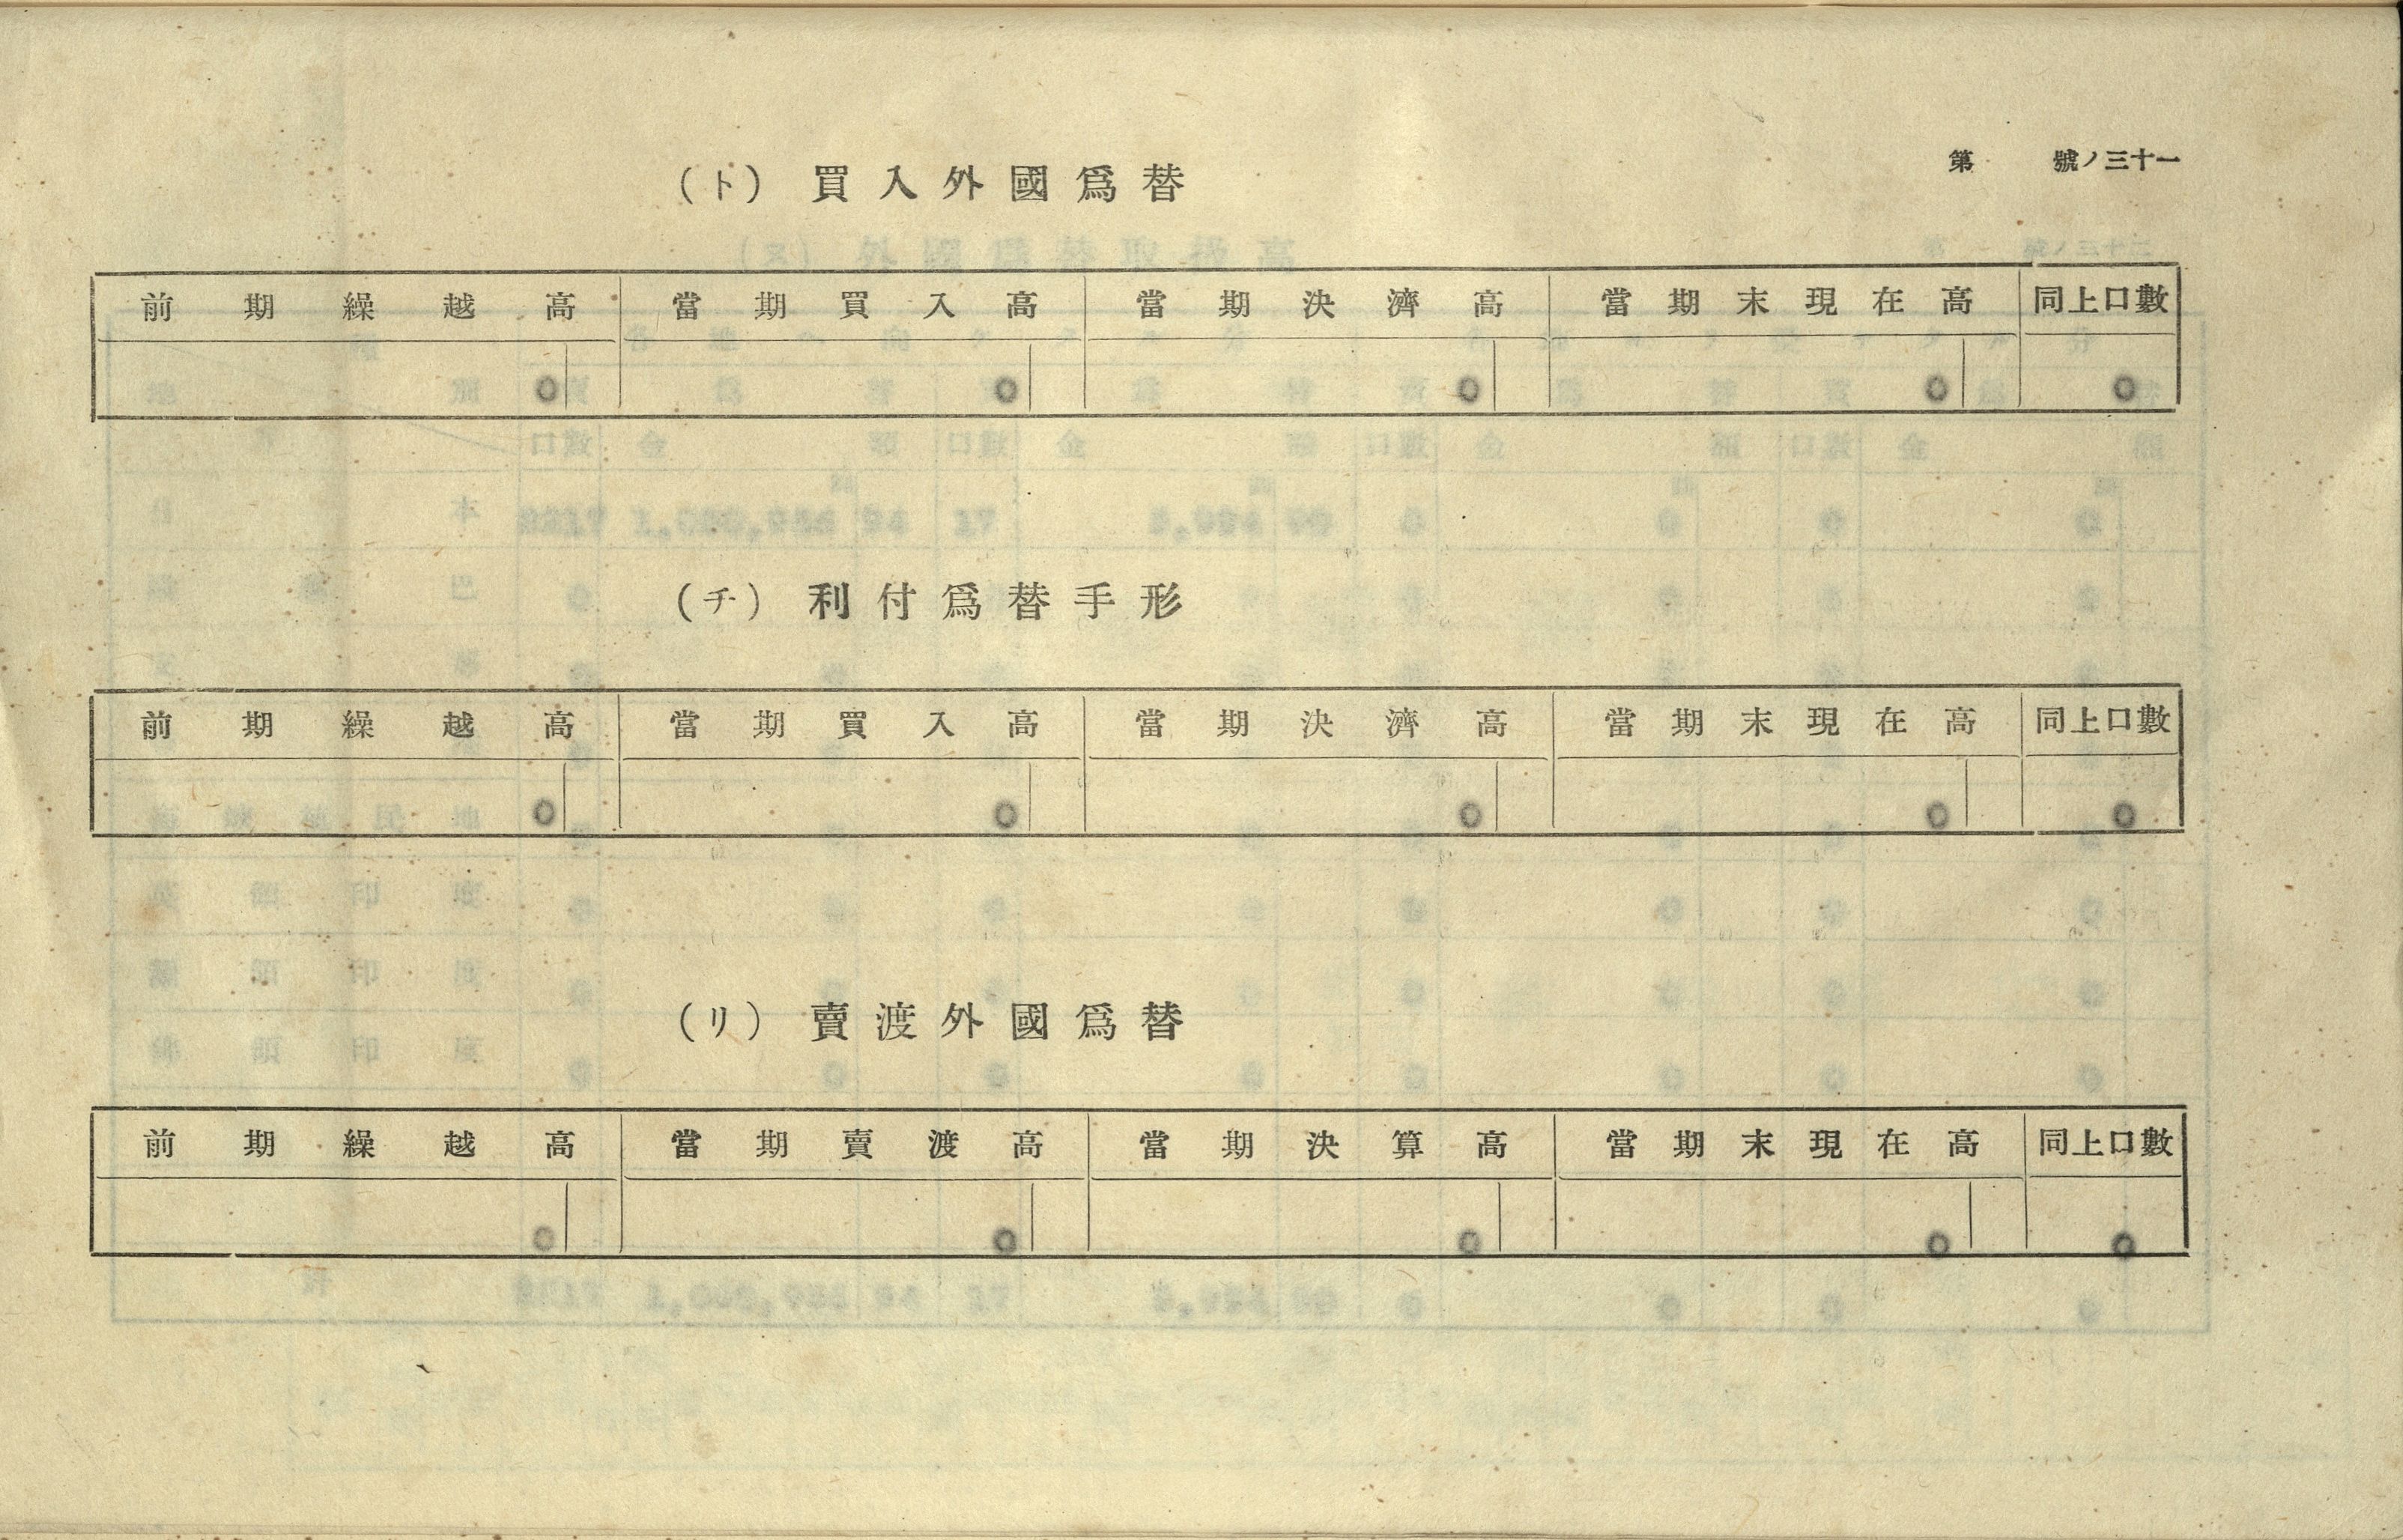 第 號ノ三十一
(ト) 買入外國爲替
前期繰越高 當期買入高 當期決濟高 當期末現在高 同上口數
0 0 0 0 0
(チ) 利付爲替手形
前期繰越高 當期買入高 當期決濟高 當期末現在高 同上口數
0 0 0 0 0
(リ) 賣渡外國爲替
前期繰越高 當期賣渡高 當期決算高 當期末現在高 同上口數
0 0 0 0 0